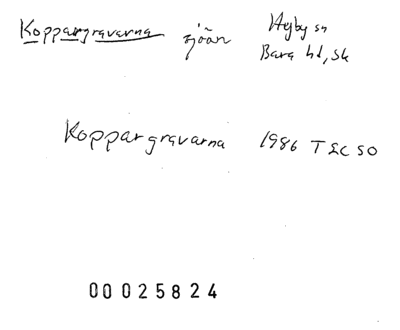 Koppargravarna sjöän Hyby sn
Bara hd, Sk
Koppargravarna 1986 T EC SO
00 025824